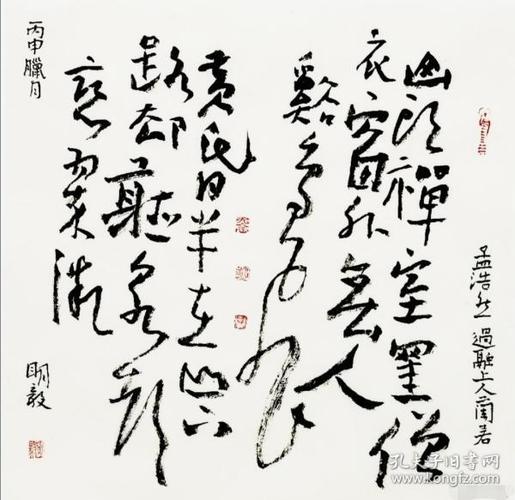 孟浩然 過融上人蘭若
山頭禪室罣僧
衣窗外無人
谿鳥飛
黄昏半在山下
路却聽泉聲
戀翠微
丙申臘月
明毅
孔夫子旧书网
kongfz.com